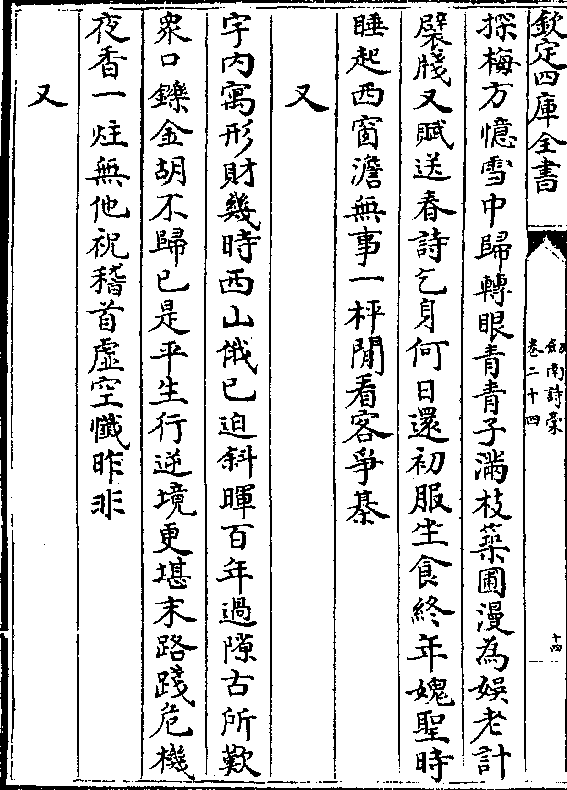 欽定四庫全書
劍南詩稾
卷二十四
十四
探梅方憶雪中歸轉眼青青子滿枝築圃漫為娱老計
襞牋又賦送春詩乞身何日還初服坐食終年媿聖時
睡起西窗澹無事一枰閒看客爭棊
又
宇内寓形財幾時西山俄已迫斜暉百年過隙古所歎
衆口鑠金胡不歸已是平生行逆境更堪末路踐危機
夜香一炷無他祝稽首虚空懺昨非
又